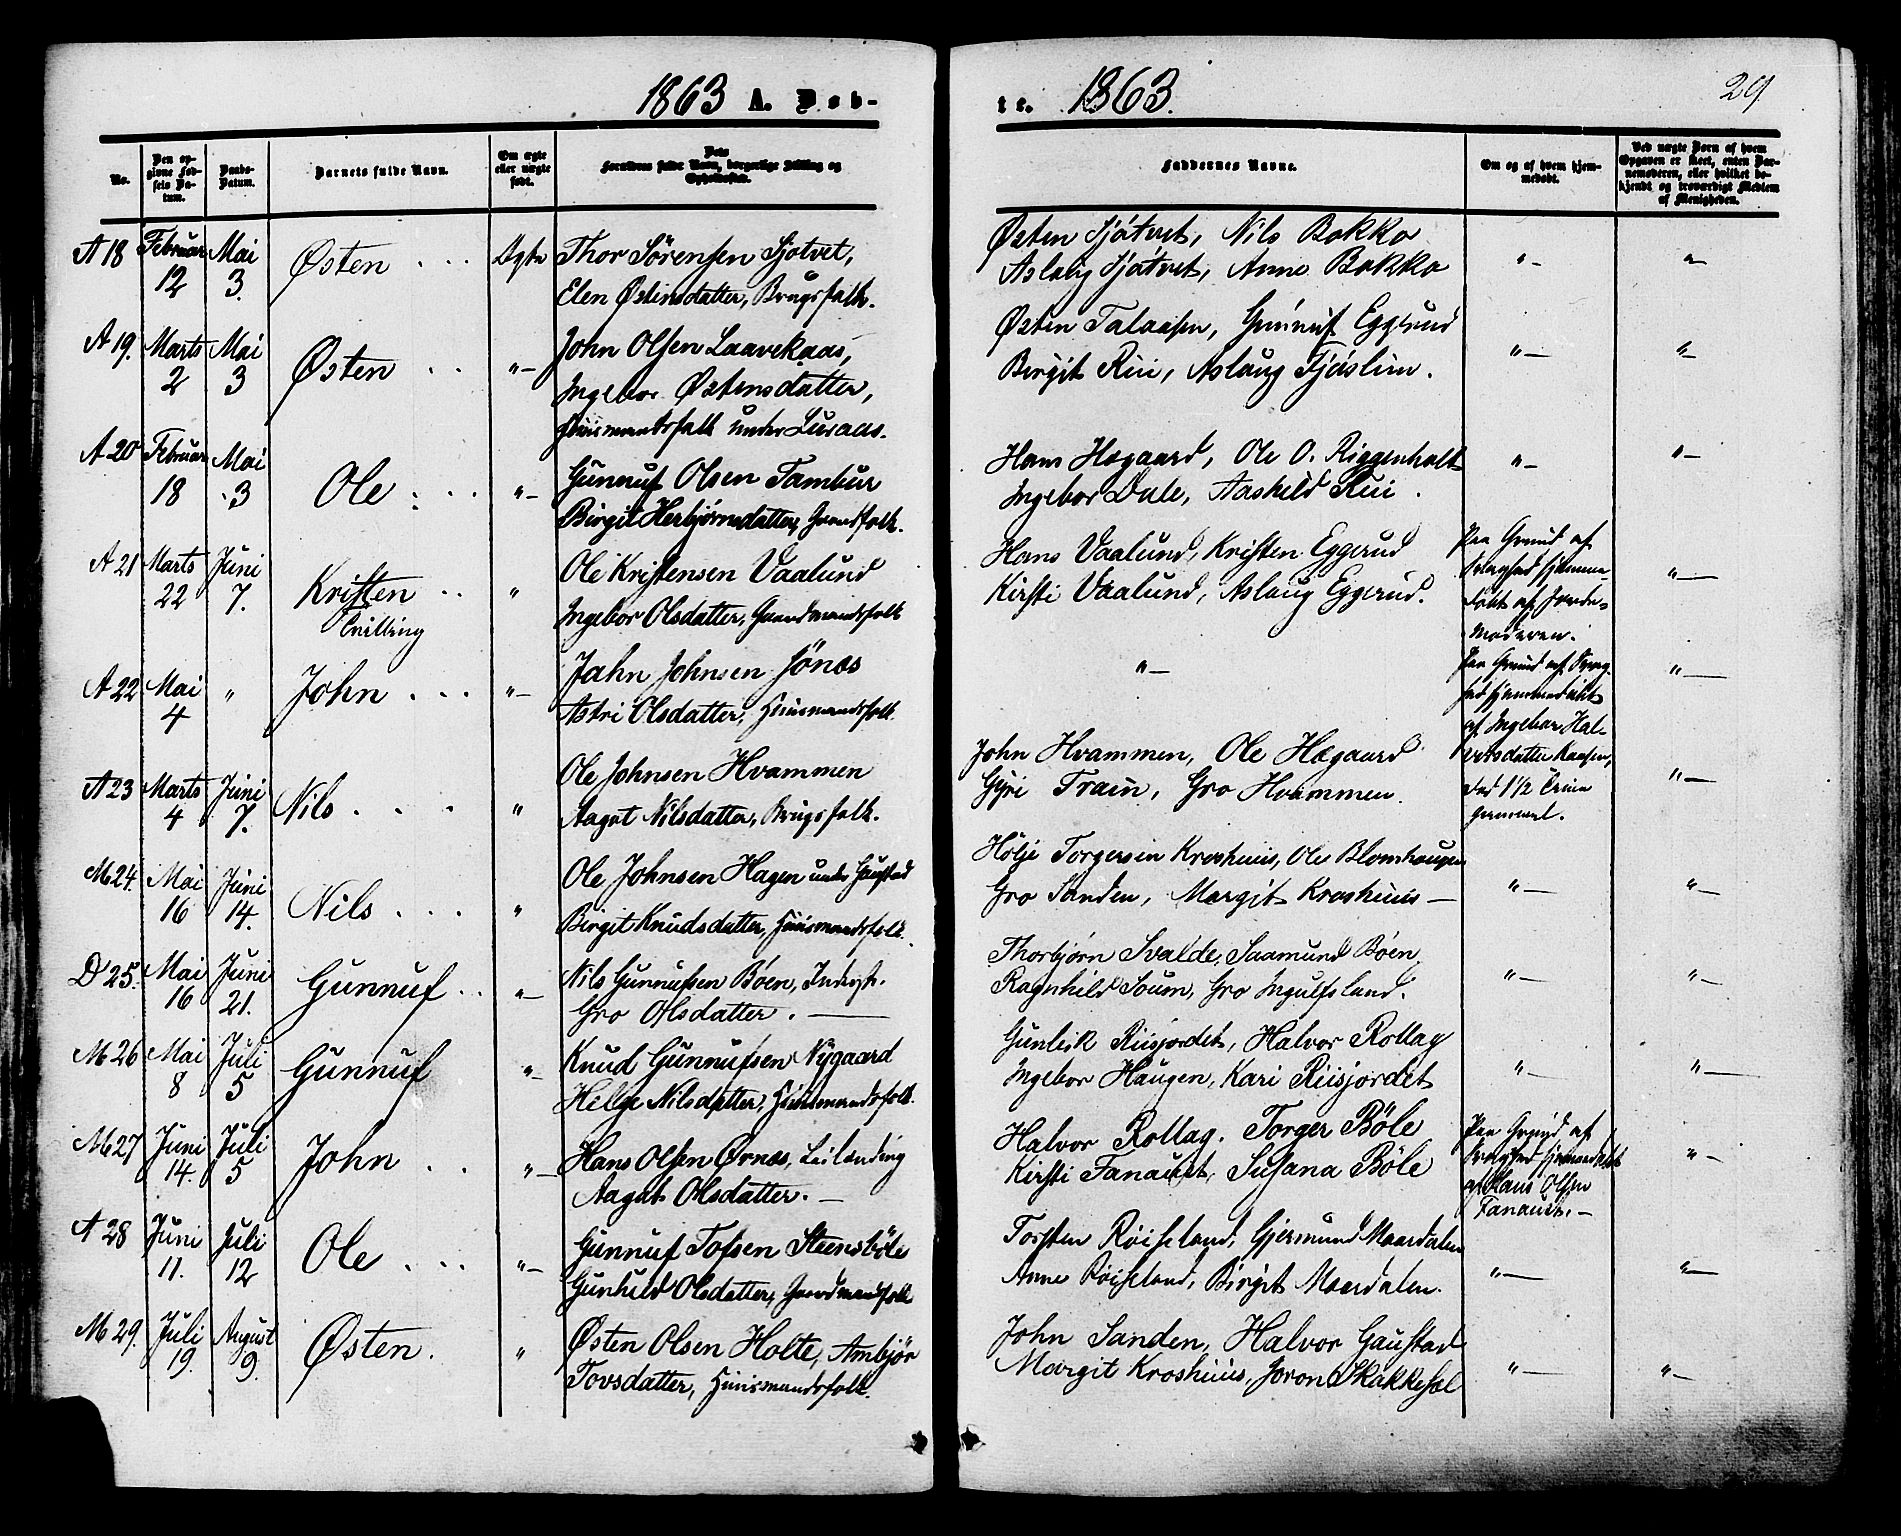 1863 A. Døb-
No.
Den opgivne Fødsels Datum.
Daabs-Datum.
Barnets fulde Navn.
Om ægte eller uægte født.
Dets Forældres fulde Navn, borgerlige Stilling og Opholdssted.
A 18 Februar 12 Mai 3. Østen Ægte Thor Sörensen Sjotvet,
Elen Østensdatter, Brugsfolk.
A 19. Marts 2 Mai 3 Østen "— John Olsen Laavekaas,
Ingebor Østensdatter,
Huusmandsfolk under Luraas.
A 20 Februar 18 Mai 3 Ole "— Gunnuf Olsen Tambur
Birgit Herbjörnsdatter, Gaardfolk.
A 21 Marts 22 Juni 7. Kristen " Ole Kristensen Vaalund
Tvilling Ingebor Olsdatter, Gaardmandsfolk
A 22 Mai 4 " John "— Jahn Johnsen Jönæs
Astri Olsdatter, Huusmandsfolk.
A 23 Marts 4 Juni 7. Nils " Ole Johnsen Hvammen
Aagot Nilsdatter, Brugsfolk.
M 24. Mai 16 Juni 14. Nils " Ole Johnsen Hagen under Gaustad
Birgit Knudsdatter, Huusmandsfolk.
D 25. Mai 16 Juni 21. Gunnuf "— Nils Gunnufsen Böen, Inderst.
Gro Olsdatter. —
M 26 Mai 8 Juli 5 Gunnuf "— Knud Gunnufsen Nygaard
Helge Nilsdatter, Huusmandsfolk.
M 27 Juni 14. Juli 5 John "— Hans Olsen Ørnæs, Leilænding
Aagot Olsdatter. —
A 28 Juni 11. Juli 12 Ole "— Gunnuf Tofsen Steensböle
Gunhild Olsdatter, Gaardmandsfolk
M 29. Juli 19. August 9. Østen. " Østen Olsen Holte, Ambjör
Tovsdatter, Huusmandsfolk.
te. 1863. 29
Faddernes Navne.
Om og af hvem hjemmedøbt.
Ved uægte Børn af hvem Opgaven er skeet, enten Barnemoderen, eller hvilket bekjendt og troværdigt Medlem af Menigheden.
Østen Sjötvet, Nils Bakko
Aslaug Sjötvet, Anne Bakko "— "—
Østen Talaasen, Gunnuf Eggerud
Birgit Rui, Aslaug Tjöslim. "— "—
Hans Hægaard, Ole O. Riggenholt "— "—
Ingebor Dale, Aashild Rui.
Hans Vaalund, Kristen Eggerud
Kirsti Vaalund, Aslaug Eggerud.
Paa Grund af
Svaghed hjemme-
døbt af Jorde-
moderen. "—
"— Paa Grund af Svag-
hed hjemmedøbt
af Ingebor Hal-
vorsdatter Kaasen,
ved 1 1/2 Time
gammel. "—
John Hvammen, Ole Hægaard
Gyri Traen, Gro Hvammen. "—
Hölje Torgersen Kroshuus, Ole Blomhaugen
Gro Sanden, Margit Kroshuus — "— "—
Thorbjörn Svalde, Saamund Böen,
Ragnhild Soum, Gro Ingulfsland. "— "—
Gunleik Riisjordet, Halvor Rollag
Ingebor Haugen, Kari Riisjordet "— "—
Halvor Rollag. Torger Böle
Kirsti Fanaust, Susana Böle
Paa Grund af
Svaghed hjemmedøbt
af Hans Olsen
Fanaust. — "—
Torsten Röisland, Gjermund Maardalen
Anne Röisland, Birgit Maardalen. "— "—
John Sanden, Halvor Gaustad
Margit Kroshuus, Joron Skakkesæl "— "—